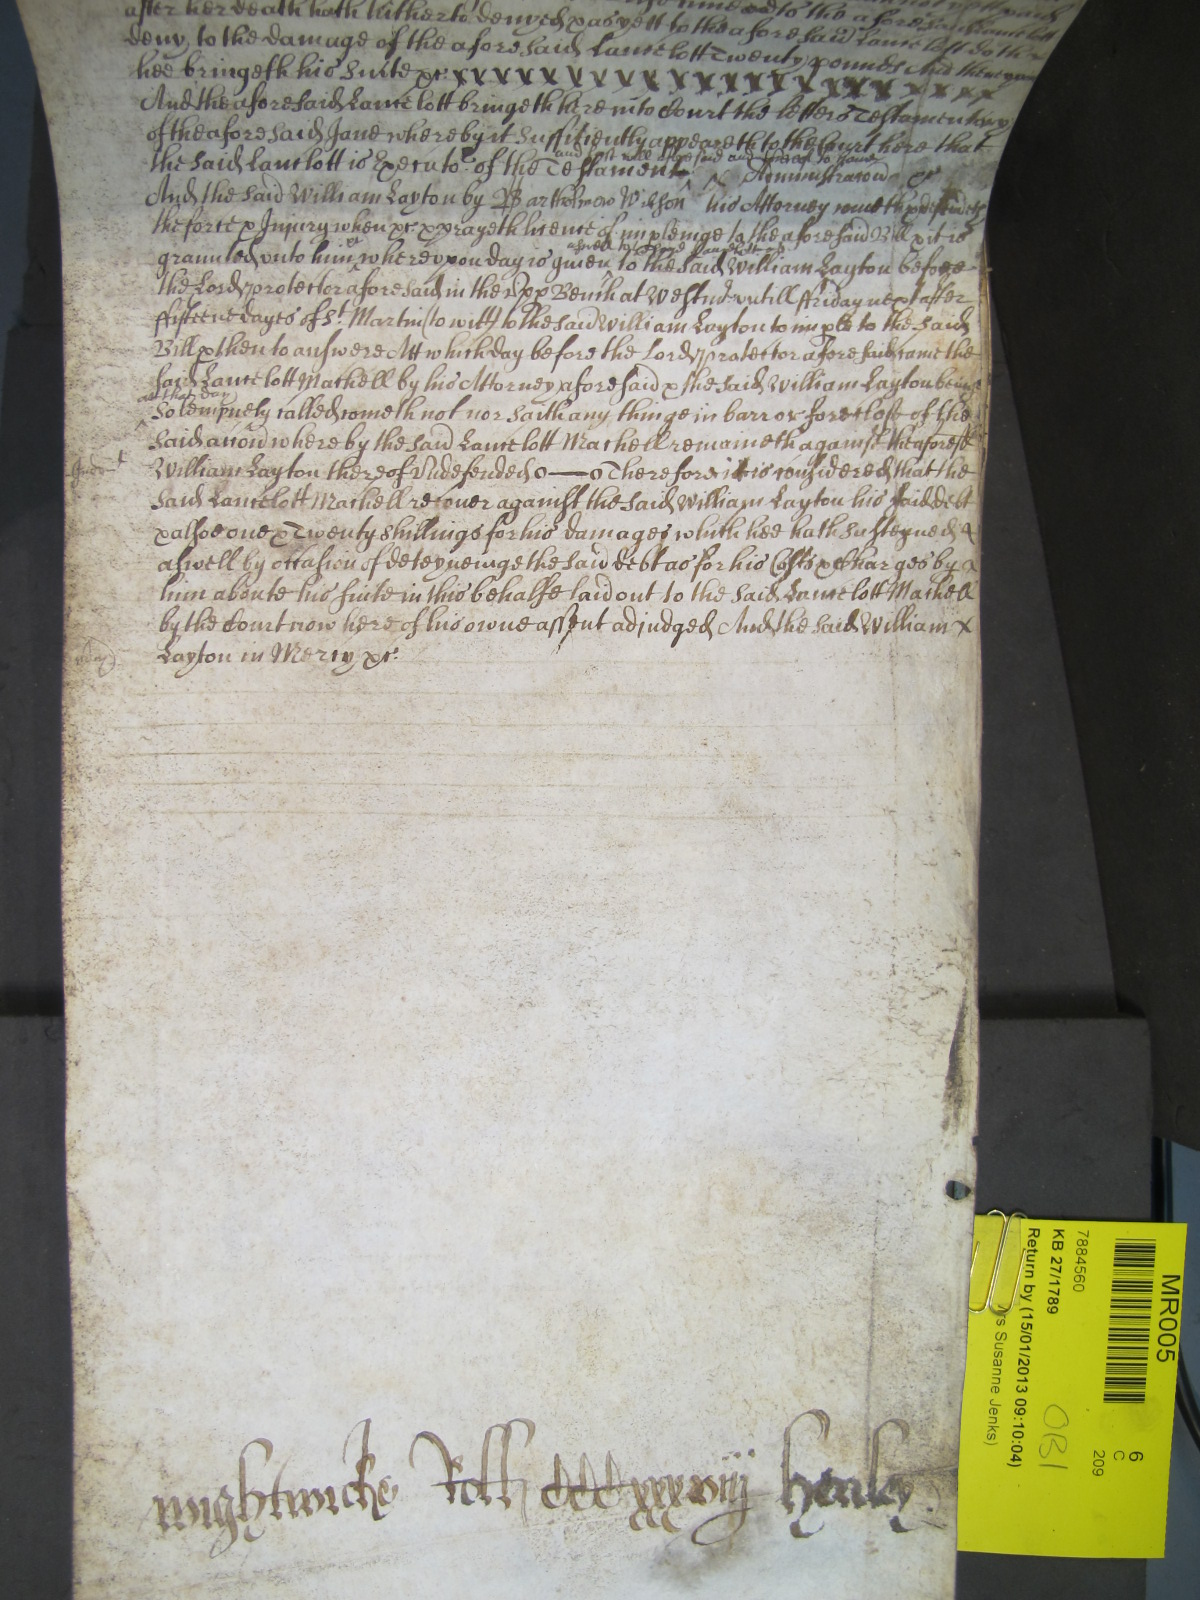 after her death hath hitherto denyed & as yett to the aforesaid Lancelott doth
deny to the damage of the aforesaid Lancelott Twenty pounds And thereupon
hee bringeth his Suite &c x x x x x x x x x x x x x x x x x x x x
And the aforesaid Lancelott bringeth here into Court the letters Testamentary
of the aforesaid Jane whereby it Sufficiently appeareth to the Court here that
and last will aforesaid and thereof to have
the said Lancelott is Executor of the Testament Administracon &c
And the said William Layton by Bartholmew Wilson his Attorney cometh & defendeth
the force & Injury when &c & prayeth licence of implenge to the aforesaid Bill & it is
aswell to the said Lancelott as
graunted unto him &c whereupon day is given to the said William Layton before
the Lord protector aforesaid in the Upp Bench at Westmr untill ffriday next after
ffifteene dayes of St Martin (to witt) to the said William Layton to imple to the said
Bill & then to answere Att which day before the lord protector aforesaid came the
said Lancelott Machell by his Attorney aforesaid & the said William Layton being
att that day
Solempnely called cometh not nor saith any thinge in barr or foreclose of the
said accon whereby the said Lancelott Machell remaineth against the aforesd
William Layton thereof Undefended o—o Therefore it is considered that the
Judgt
said Lancelott Machell recover against the said William Layton his said debt
& alsoe one & Twenty shillings for his damages which hee hath susteyned
aswell by occasion of deteyneinge the said debt as for his Costs & Charges by
him aboute his suite in this behalfe laid out to the said Lancelott Machell
by the Court now here of his owne assent adjudged And the said William x
Layton in Mercy &c
mcy
Wightwicke Roll DDDxxxviij Henley
MR005
6
C
209
7884560
KB 27/1789
OB1
Return by (15/01/2013 09:10:04)
Mrs Susanne Jenks)